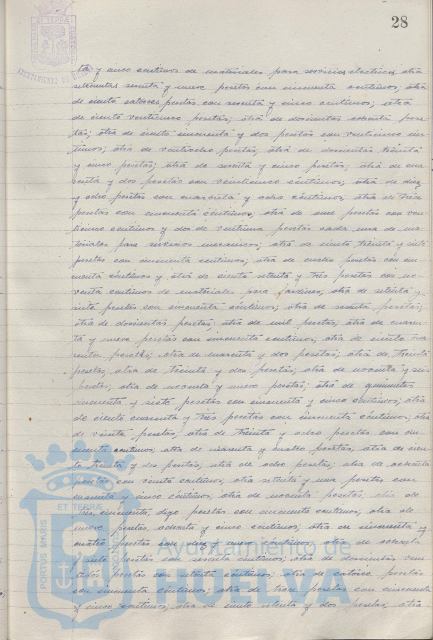 28
ta y cinco centimos de materiales para servicios electricos, otra
setecientas sesenta y nueve pesetas con cincuenta centimos, otra
de ciento catorce pesetas con sesenta y cinco centimos, otra
de ciento veinticinco pesetas, otra de doscientas ochenta pese-
tas, otra de ciento cincuenta y dos pesetas con veinticinco cen-
timos, otra de veintiocho pesetas, otra de doscientas treinta
y cinco pesetas, otra de sesenta y cinco pesetas, otra de
y dos pesetas con veinticinco centimos, otra de diez
y ocho pesetas con cuarenta y ocho centimos, otra de trece
pesetas con cincuenta centimos, otra de once pesetas con vein-
ticinco centimos y dos de veintiuna pesetas cada una de ma-
teriales para servicios mecanicos, otra de ciento treinta y siete
pesetas con cincuenta centimos, otra de cuatro pesetas con cin-
cuenta centimos y otra de ciento setenta y tres pesetas con no-
venta centimos de materiales para jardines, otra de setenta y
siete pesetas con cincuenta centimos, otra de sesenta pesetas,
otra de doscientas pesetas, otra de mil pesetas, otra de cuaren-
ta y nueve pesetas con cincuenta centimos, otra de ciento
pesetas, otra de cuarenta y dos pesetas, otra de treinta
pesetas, otra de treinta y dos pesetas, otra de noventa y seis
pesetas, otra de noventa y nueve pesetas, otra de quinientas
cincuenta y siete pesetas con cincuenta y cinco centimos, otra
de ciento cuarenta y tres pesetas con cincuenta centimos, otra
de veinte pesetas, otra de treinta y ocho pesetas con cin-
cuenta centimos, otra de cuarenta y cuatro pesetas, otra de cien-
to treinta y dos pesetas, otra de ocho pesetas, otra de ochenta
pesetas con veinte centimos, otra setenta y una pesetas con
cuarenta y cinco centimos, otra de noventa pesetas, otra de
tres cincuenta, digo pesetas con cincuenta centimos, otra de
nueve pesetas, ochenta y cinco centimos, otra de cincuenta y
cuatro pesetas con diez y nueve centimos, otra de ochenta
y siete pesetas con sesenta centimos, otra de doscientas
pesetas con setenta centimos, otra de catorce pesetas
con cincuenta centimos, otra de trece pesetas con cincuenta
y cinco centimos, otra de ciento setenta y dos pesetas, otra
ET TERRA
PORTUS MARIS
Ayuntamiento de
HUELVA